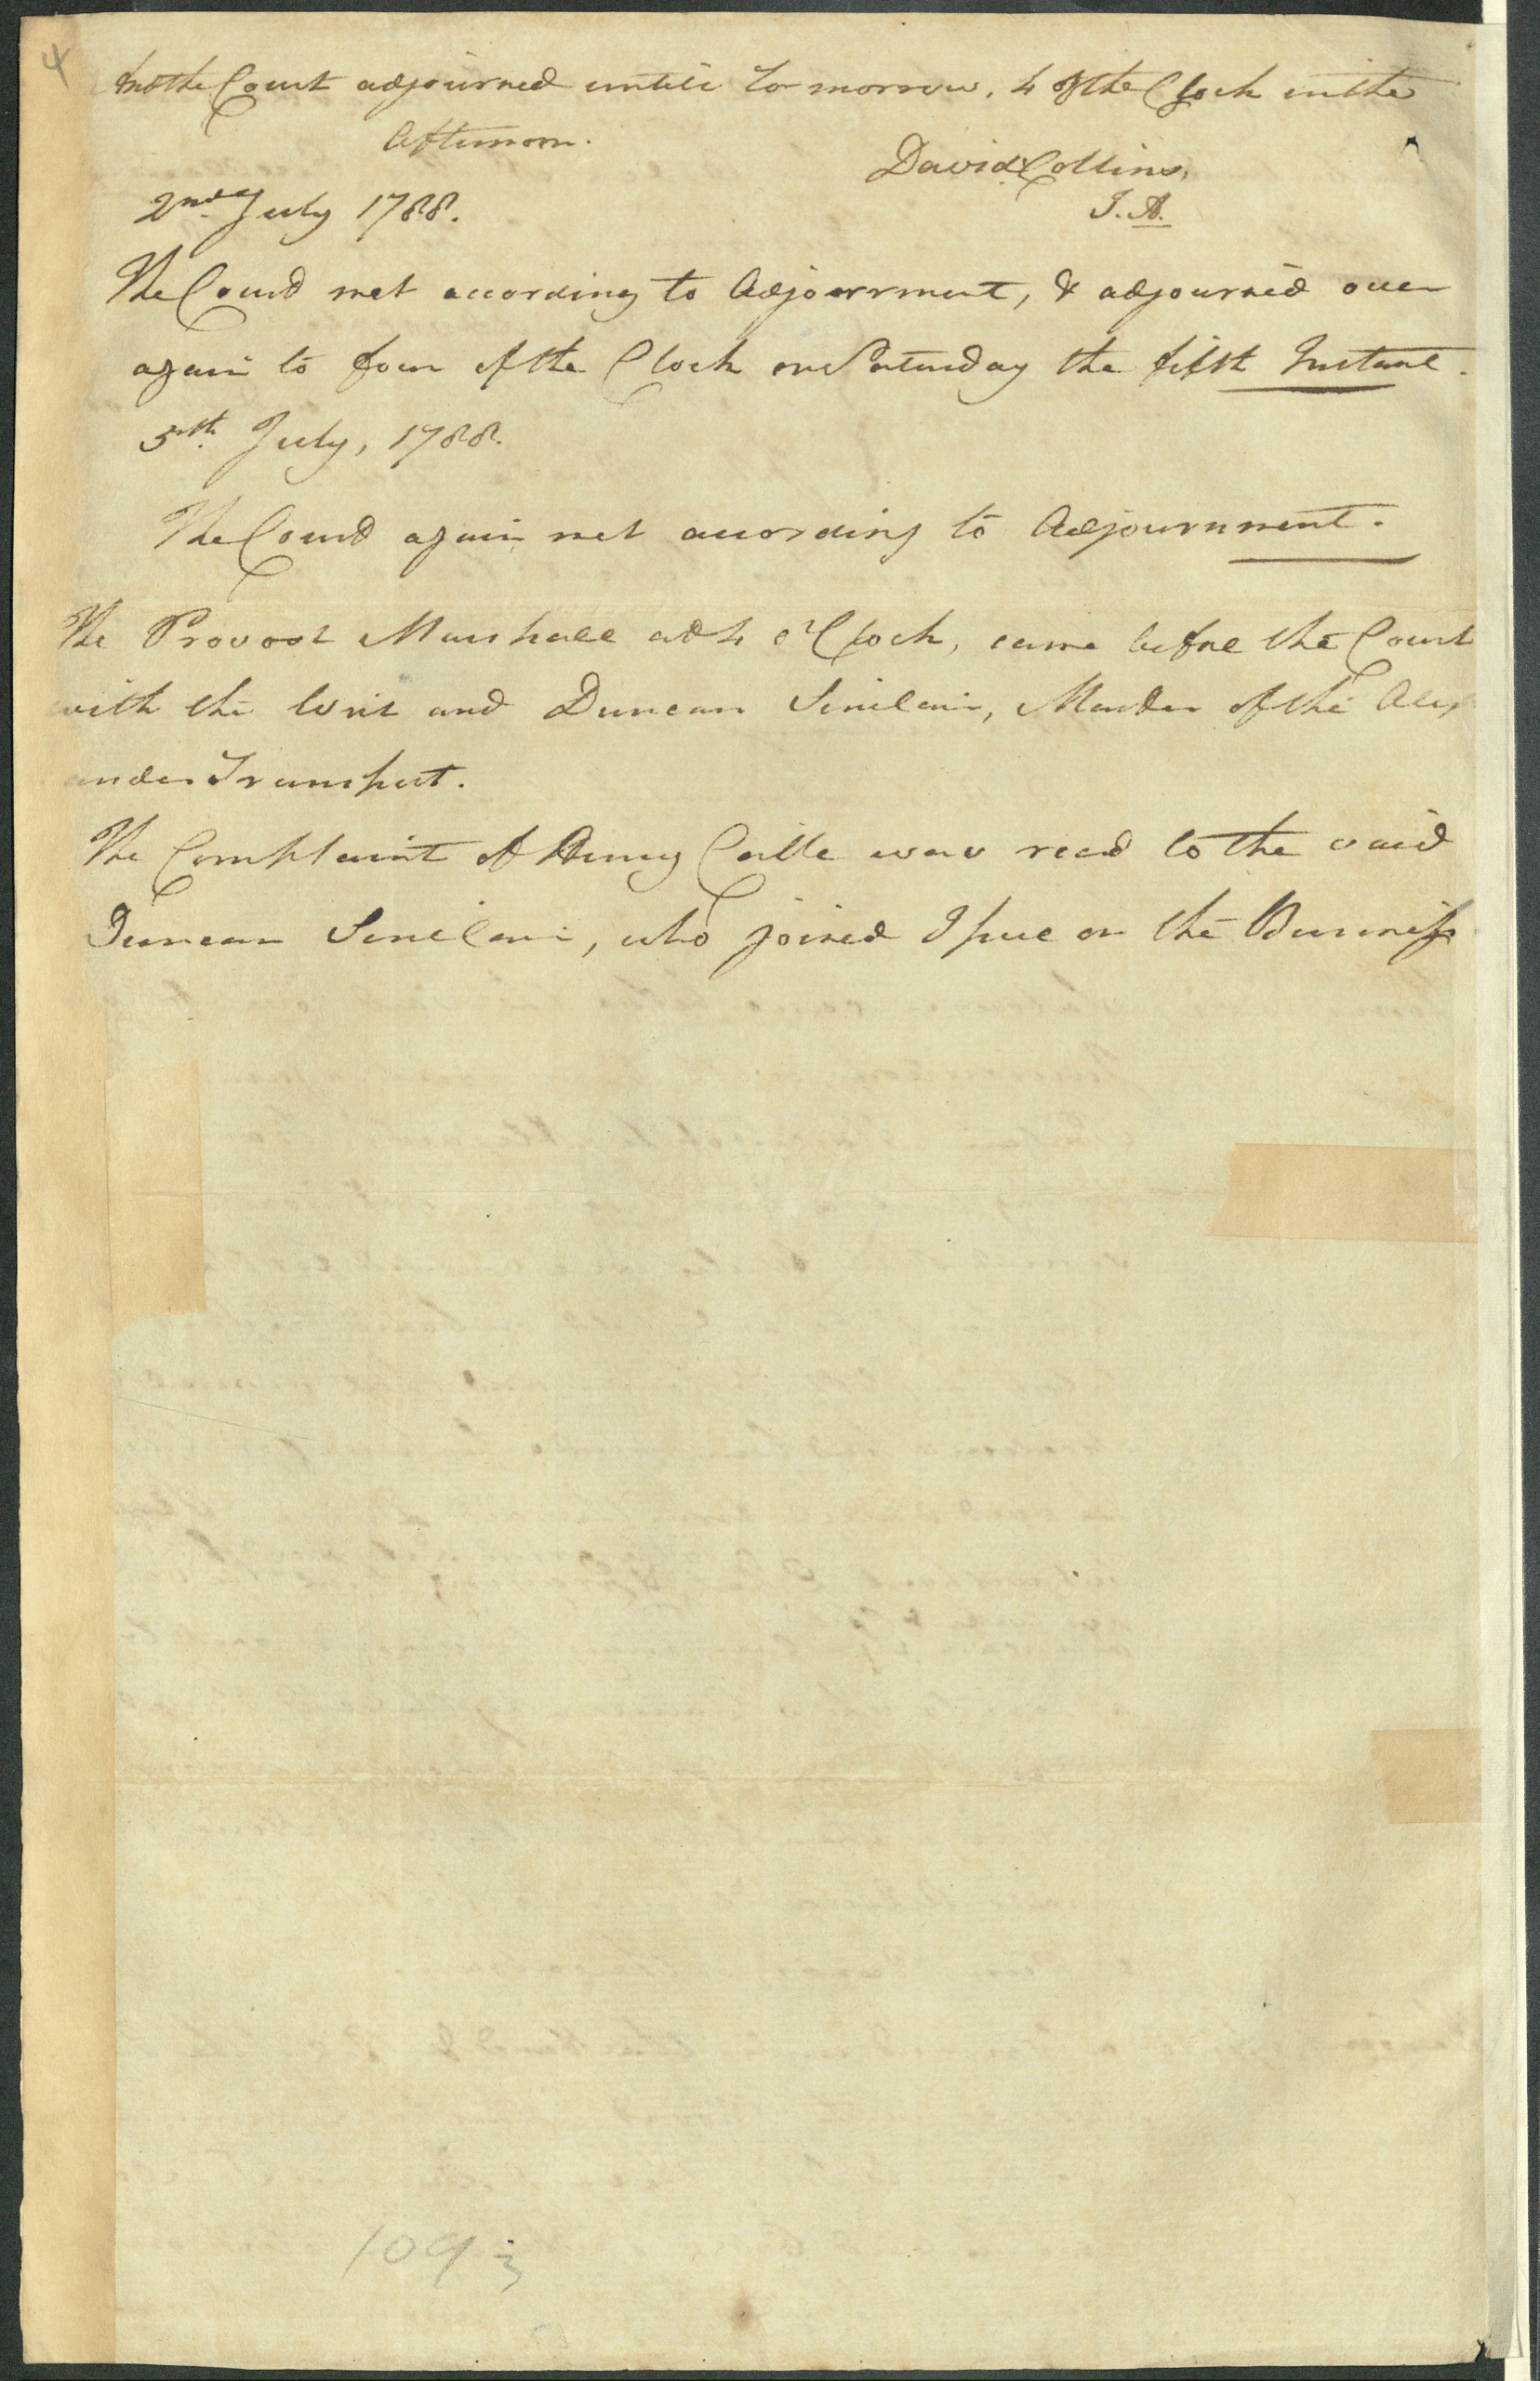 4
And the Court adjourned untill to morrow, 4 of the Clock in the
Afternoon.
David Collins,
J. A.
2nd. July 1788.
The Court met according to Adjournment, & adjourned over
again to four of the Clock on Saturday the fifth Instant.
5th. July, 1788.
The Court again met according to Adjournment.
The Provost Marshall at 4 o'Clock, came before the Court
with the Writ and Duncan Sinclair, Master of the Alex
ander Transport.
The Complaint of Henry Cable was read to the said
Duncan Sinclair, who joined Issue on the Business
109
3